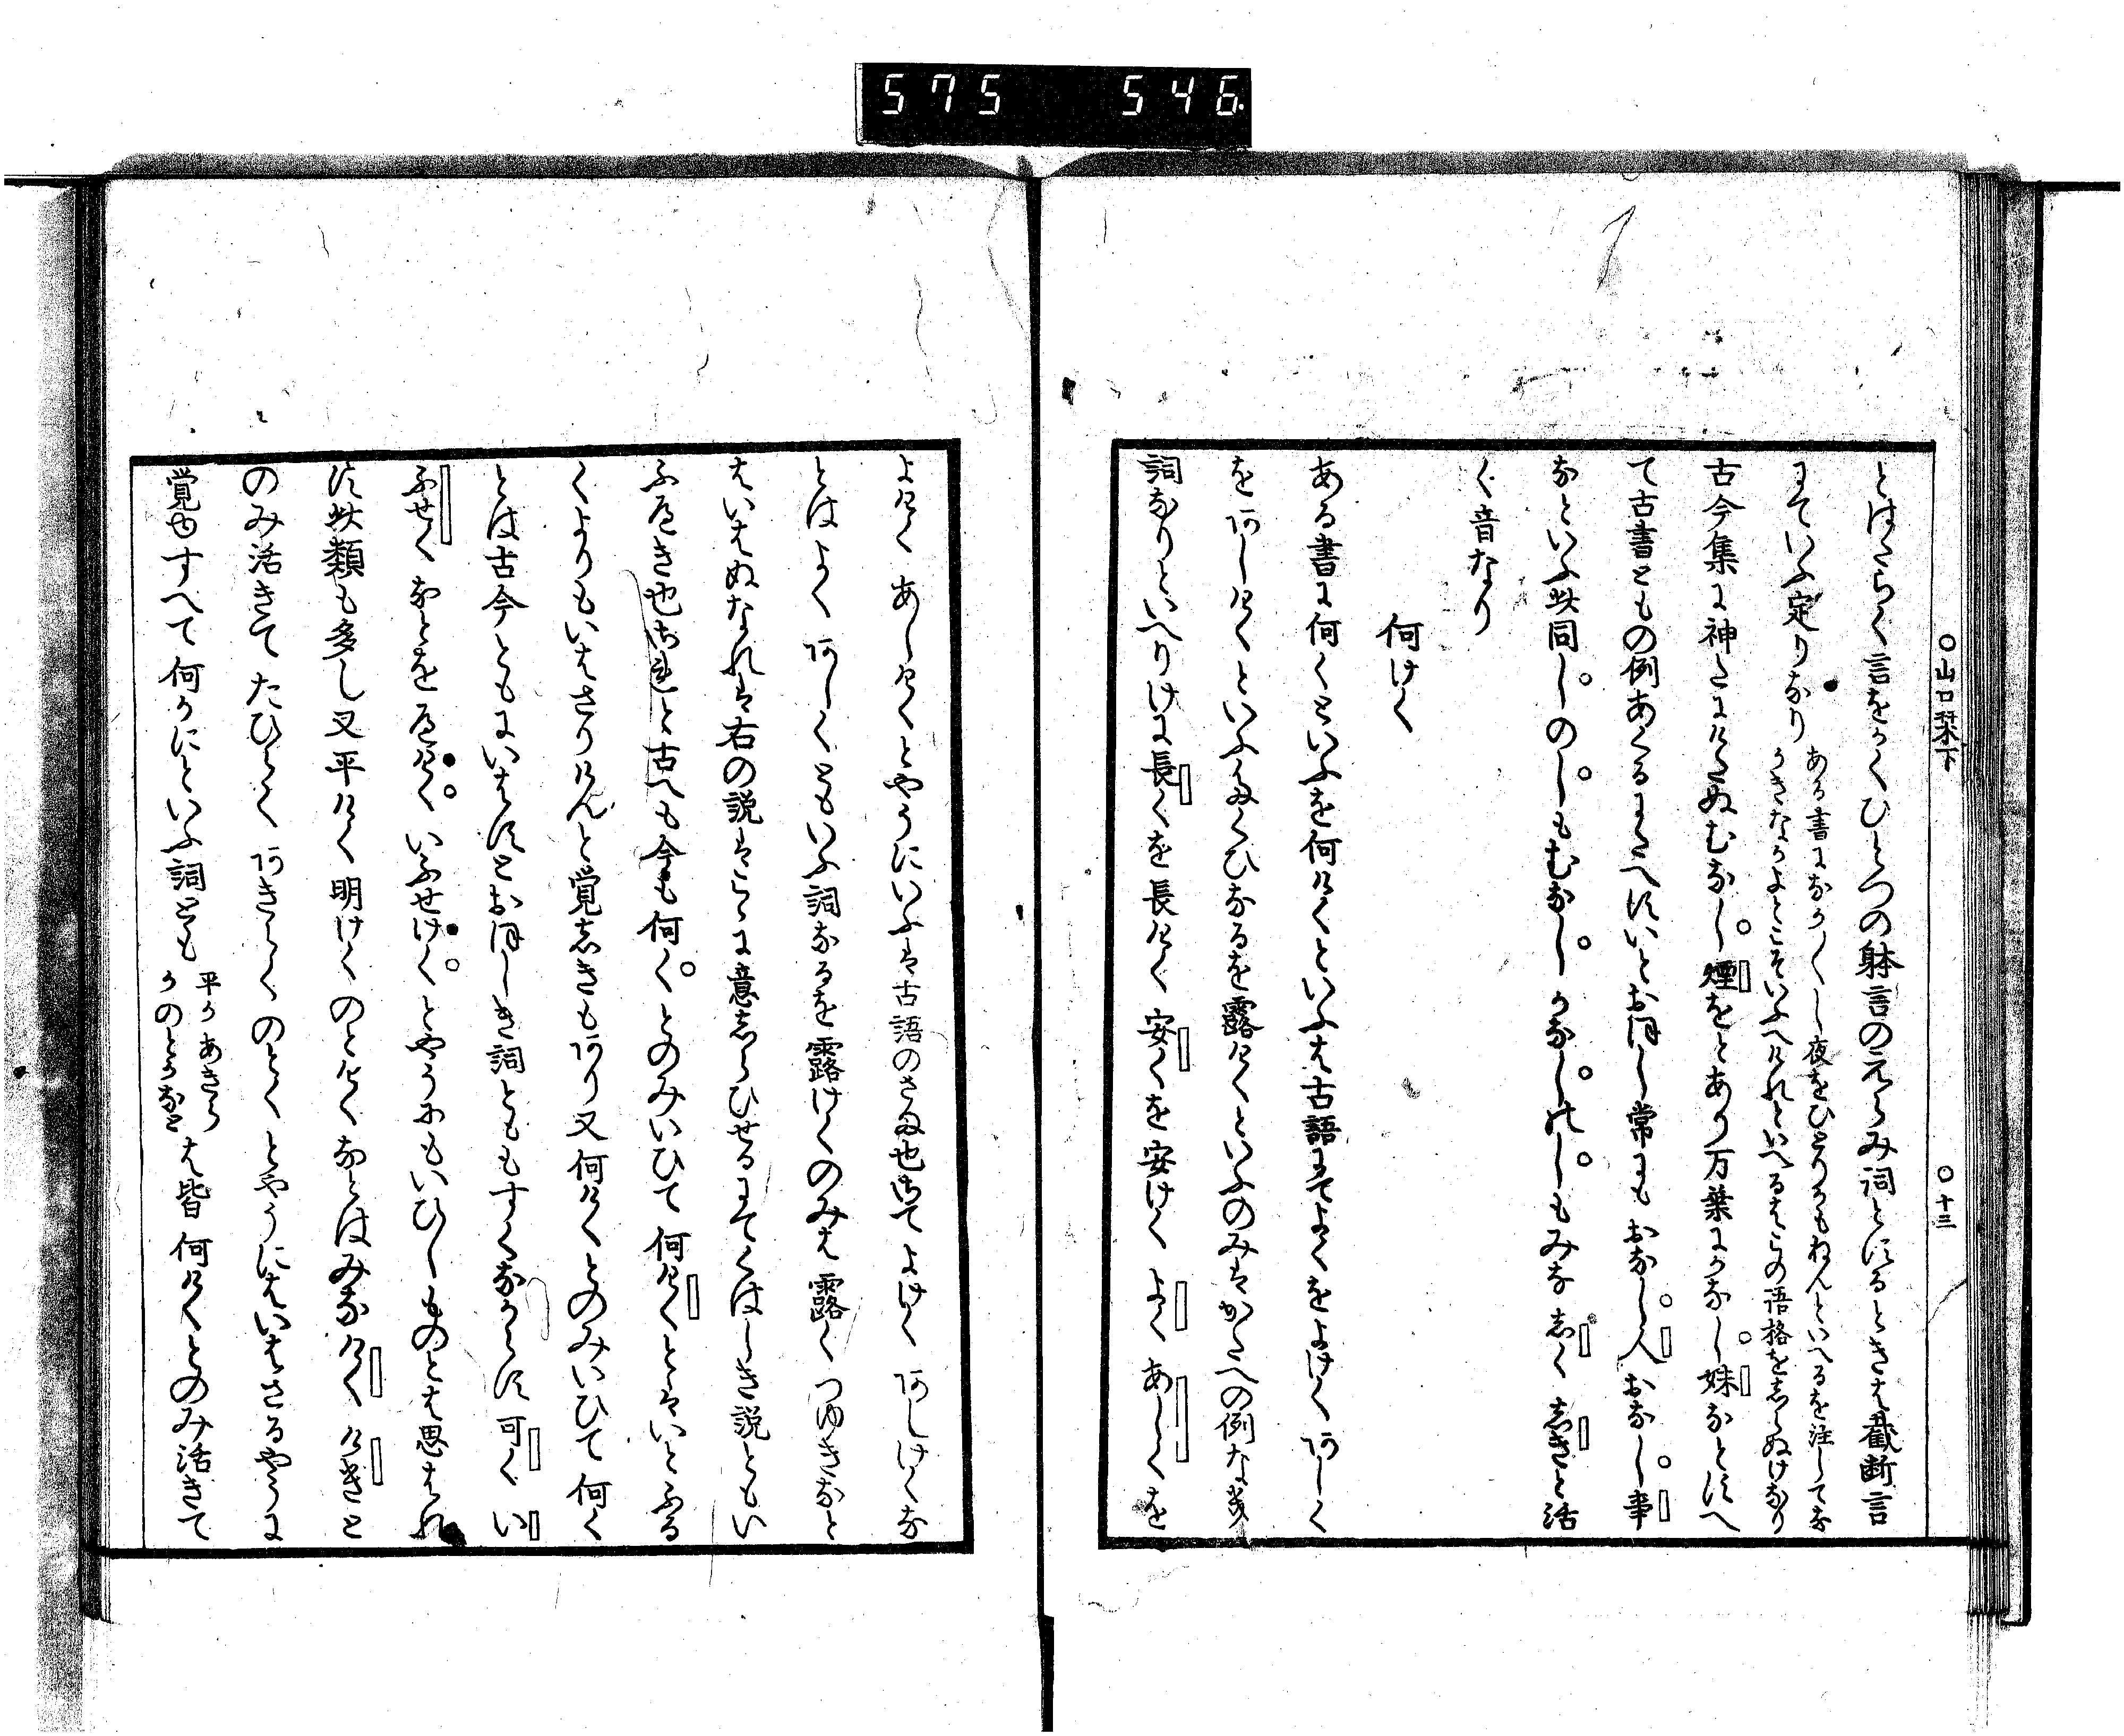 575 546
○山口栞下 ○十三
とはたらく言をかくひとつの躰言のえらみ詞とするときは截断言
にていふ定りなり
ある書になか〳〵し夜をひとりかもねんといへるを注してな
かきなかよとこそいふへけれといへるはこの語格をしらぬけなり
古今集に神たにけたぬむなし煙をとあり万葉にかなし妹なとすへ
て古書ともの例あくるにたへすいとおほし常にもおなし人おなし事
なといふ此同しのしもむなしかなしのしもみなしくしきと活
く音なり
何けく
ある書に何くといふを何けくといふは古語にてよくをよけくあしく
をあしけくといふたくひなるを露けくといふのみはかたへの例なき
詞なりといへりけに長くを長けく安くを安けくよくあしくを
よけくあしけくとやうにいふは古語のさま也さてよけくあしけくな
とはよくあしくともいふ詞なるを露けくのみは露くつゆきなと
はいはぬなれは右の説はこゝに意しらひせるにてくはしき説ともい
ふへき也されと古へも今も何くとのみいひて何けくとはいとふる
くよりもいはさりけんと覚しきもあり又何けくとのみいひて何く
とは古今ともにいはすとおほしき詞とももすくなからす可くい
ふせくなとをへけくいふせけくとやうにもいひしものとは思はれ
す此類も多し又平けく明けくのとけくなとはみなけくけきと
のみ活きてたひらくあきらくのとくとやうにはいはさるやうに
覚ゆすへて何かにといふ詞とも
平かあきら
かのとかなと
は皆何けくとのみ活きて